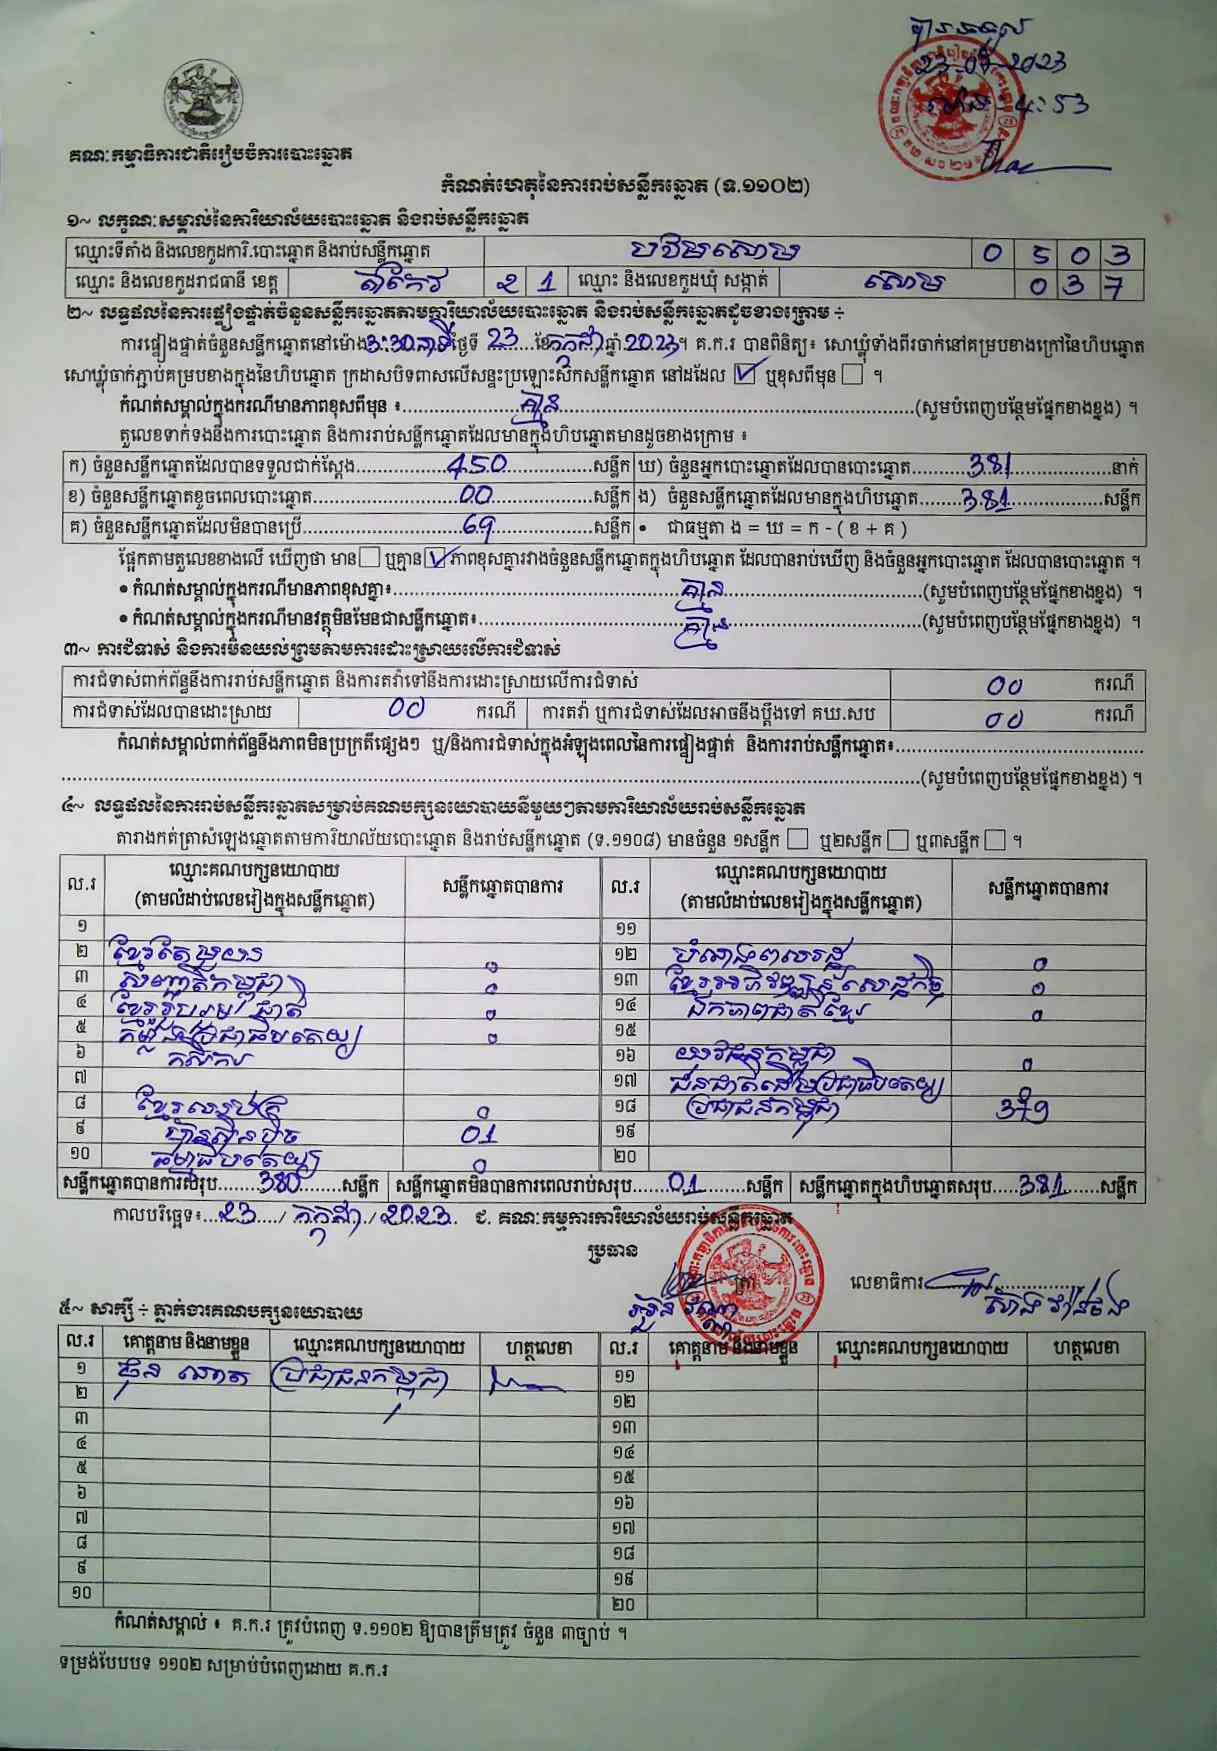 បានទទួល
23-07-2023
ម៉ោង 4:53
គណៈកម្មាធិការជាតិរៀបចំការបោះឆ្នោត
កំណត់ហេតុនៃការរាប់សន្លឹកឆ្នោត (ទ.១១០២)
១~ លក្ខណៈសម្គាល់នៃការិយាល័យបោះឆ្នោត និងរាប់សន្លឹកឆ្នោត
ឈ្មោះទីតាំង និងលេខកូដការិ.បោះឆ្នោត និងរាប់សន្លឹកឆ្នោត បឋមសោម 0 5 0 3
ឈ្មោះ និងលេខកូដរាជធានី ខេត្ត តាកែវ 2 1 ឈ្មោះ និងលេខកូដឃុំ សង្កាត់ សោម 0 3 7
២~ លទ្ធផលនៃការផ្ទៀងផ្ទាត់ចំនួនសន្លឹកឆ្នោតតាមការិយាល័យបោះឆ្នោត និងរាប់សន្លឹកឆ្នោតដូចខាងក្រោម ÷
ការផ្ទៀងផ្ទាត់ចំនួនសន្លឹកឆ្នោតនៅម៉ោង 3:30នាទី ថ្ងៃទី 23 ខែ កក្កដា ឆ្នាំ 2023។ គ.ក.រ បានពិនិត្យ៖ សោឃ្លុំទាំងពីរចាក់នៅគម្របខាងក្រៅនៃហិបឆ្នោត
សោឃ្លុំចាក់ភ្ជាប់គម្របខាងក្នុងនៃហិបឆ្នោត ក្រដាសបិទពាសលើសន្ទះប្រឡោះសៀតសន្លឹកឆ្នោត នៅដដែល ☑ ឬខុសពីមុន ☐ ។
កំណត់សម្គាល់ក្នុងករណីមានភាពខុសពីមុន ៖ គ្មាន (សូមបំពេញបន្ថែមផ្នែកខាងខ្នង) ។
តួលេខទាក់ទងនឹងការបោះឆ្នោត និងការរាប់សន្លឹកឆ្នោតដែលមានក្នុងហិបឆ្នោតមានដូចខាងក្រោម ៖
ក) ចំនួនសន្លឹកឆ្នោតដែលបានទទួលជាក់ស្តែង 450 សន្លឹក ឃ) ចំនួនអ្នកបោះឆ្នោតដែលបានបោះឆ្នោត 381 នាក់
ខ) ចំនួនសន្លឹកឆ្នោតខូចពេលបោះឆ្នោត 00 សន្លឹក ង) ចំនួនសន្លឹកឆ្នោតដែលមានក្នុងហិបឆ្នោត 381 សន្លឹក
គ) ចំនួនសន្លឹកឆ្នោតដែលមិនបានប្រើ 69 សន្លឹក • ជាធម្មតា ង = ឃ = ក - ( ខ + គ )
ផ្អែកតាមតួលេខខាងលើ ឃើញថា មាន ☐ ឬគ្មាន ☑ ភាពខុសគ្នារវាងចំនួនសន្លឹកឆ្នោតក្នុងហិបឆ្នោត ដែលបានរាប់ឃើញ និងចំនួនអ្នកបោះឆ្នោត ដែលបានបោះឆ្នោត ។
• កំណត់សម្គាល់ក្នុងករណីមានភាពខុសគ្នា៖ គ្មាន (សូមបំពេញបន្ថែមផ្នែកខាងខ្នង) ។
• កំណត់សម្គាល់ក្នុងករណីមានវត្ថុមិនមែនជាសន្លឹកឆ្នោត៖ គ្មាន (សូមបំពេញបន្ថែមផ្នែកខាងខ្នង) ។
៣~ ការជំទាស់ និងការមិនយល់ព្រមតាមការដោះស្រាយលើការជំទាស់
ការជំទាស់ពាក់ព័ន្ធនឹងការរាប់សន្លឹកឆ្នោត និងការតវ៉ាទៅនឹងការដោះស្រាយលើការជំទាស់ 00 ករណី
ការជំទាស់ដែលបានដោះស្រាយ 00 ករណី ការតវ៉ា ឬការជំទាស់ដែលអាចនឹងប្តឹងទៅ គឃ.សប 00 ករណី
កំណត់សម្គាល់ពាក់ព័ន្ធនឹងភាពមិនប្រក្រតីផ្សេងៗ ឬ/និងការជំទាស់ក្នុងអំឡុងពេលនៃការផ្ទៀងផ្ទាត់ និងការរាប់សន្លឹកឆ្នោត៖
(សូមបំពេញបន្ថែមផ្នែកខាងខ្នង) ។
៤~ លទ្ធផលនៃការរាប់សន្លឹកឆ្នោតសម្រាប់គណបក្សនយោបាយនីមួយៗតាមការិយាល័យរាប់សន្លឹកឆ្នោត
តារាងកត់ត្រាសំឡេងឆ្នោតតាមការិយាល័យបោះឆ្នោត និងរាប់សន្លឹកឆ្នោត (ទ.១១០៨) មានចំនួន ១សន្លឹក ☐ ឬ២សន្លឹក ☐ ឬ៣សន្លឹក ☐ ។
ល.រ ឈ្មោះគណបក្សនយោបាយ សន្លឹកឆ្នោតបានការ ល.រ ឈ្មោះគណបក្សនយោបាយ សន្លឹកឆ្នោតបានការ
(តាមលំដាប់លេខរៀងក្នុងសន្លឹកឆ្នោត) (តាមលំដាប់លេខរៀងក្នុងសន្លឹកឆ្នោត)
១ ១១
២ ខ្មែរតែមួយ 0 ១២ 0
៣ សញ្ជាតិកម្ពុជា 0 ១៣ ខ្មែរអភិវឌ្ឍន៍សេដ្ឋកិច្ច 0
៤ ខ្មែររួបរួមជាតិ 0 ១៤ ឯកភាពជាតិខ្មែរ 0
៥ កម្លាំងប្រជាធិបតេយ្យ 0 ១៥
៦ កសិករ ១៦ យុវជនកម្ពុជា 0
៧ ១៧ ជនជាតិដើមប្រជាធិបតេយ្យ
៨ 0 ១៨ ប្រជាជនកម្ពុជា 379
៩ ហ៊្វុនស៊ិនប៉ិច 01 ១៩
១០ ធម្មាធិបតេយ្យ 0 ២០
សន្លឹកឆ្នោតបានការសរុប 380 សន្លឹក សន្លឹកឆ្នោតមិនបានការពេលរាប់សរុប 01 សន្លឹក សន្លឹកឆ្នោតក្នុងហិបឆ្នោតសរុប 381 សន្លឹក
កាលបរិច្ឆេទ៖ 23 / កក្កដា / 2023 ជ. គណៈកម្មការការិយាល័យរាប់សន្លឹកឆ្នោត
ប្រធាន
លេខាធិការ
៥~ សាក្សី ÷ ភ្នាក់ងារគណបក្សនយោបាយ
ល.រ គោត្តនាម និងនាមខ្លួន ឈ្មោះគណបក្សនយោបាយ ហត្ថលេខា ល.រ គោត្តនាម និងនាមខ្លួន ឈ្មោះគណបក្សនយោបាយ ហត្ថលេខា
១ ប្រជាជនកម្ពុជា ១១
២ ១២
៣ ១៣
៤ ១៤
៥ ១៥
៦ ១៦
៧ ១៧
៨ ១៨
៩ ១៩
១០ ២០
កំណត់សម្គាល់ ៖ គ.ក.រ ត្រូវបំពេញ ទ.១១០២ ឱ្យបានត្រឹមត្រូវ ចំនួន ៣ច្បាប់ ។
ទម្រង់បែបបទ ១១០២ សម្រាប់បំពេញដោយ គ.ក.រ